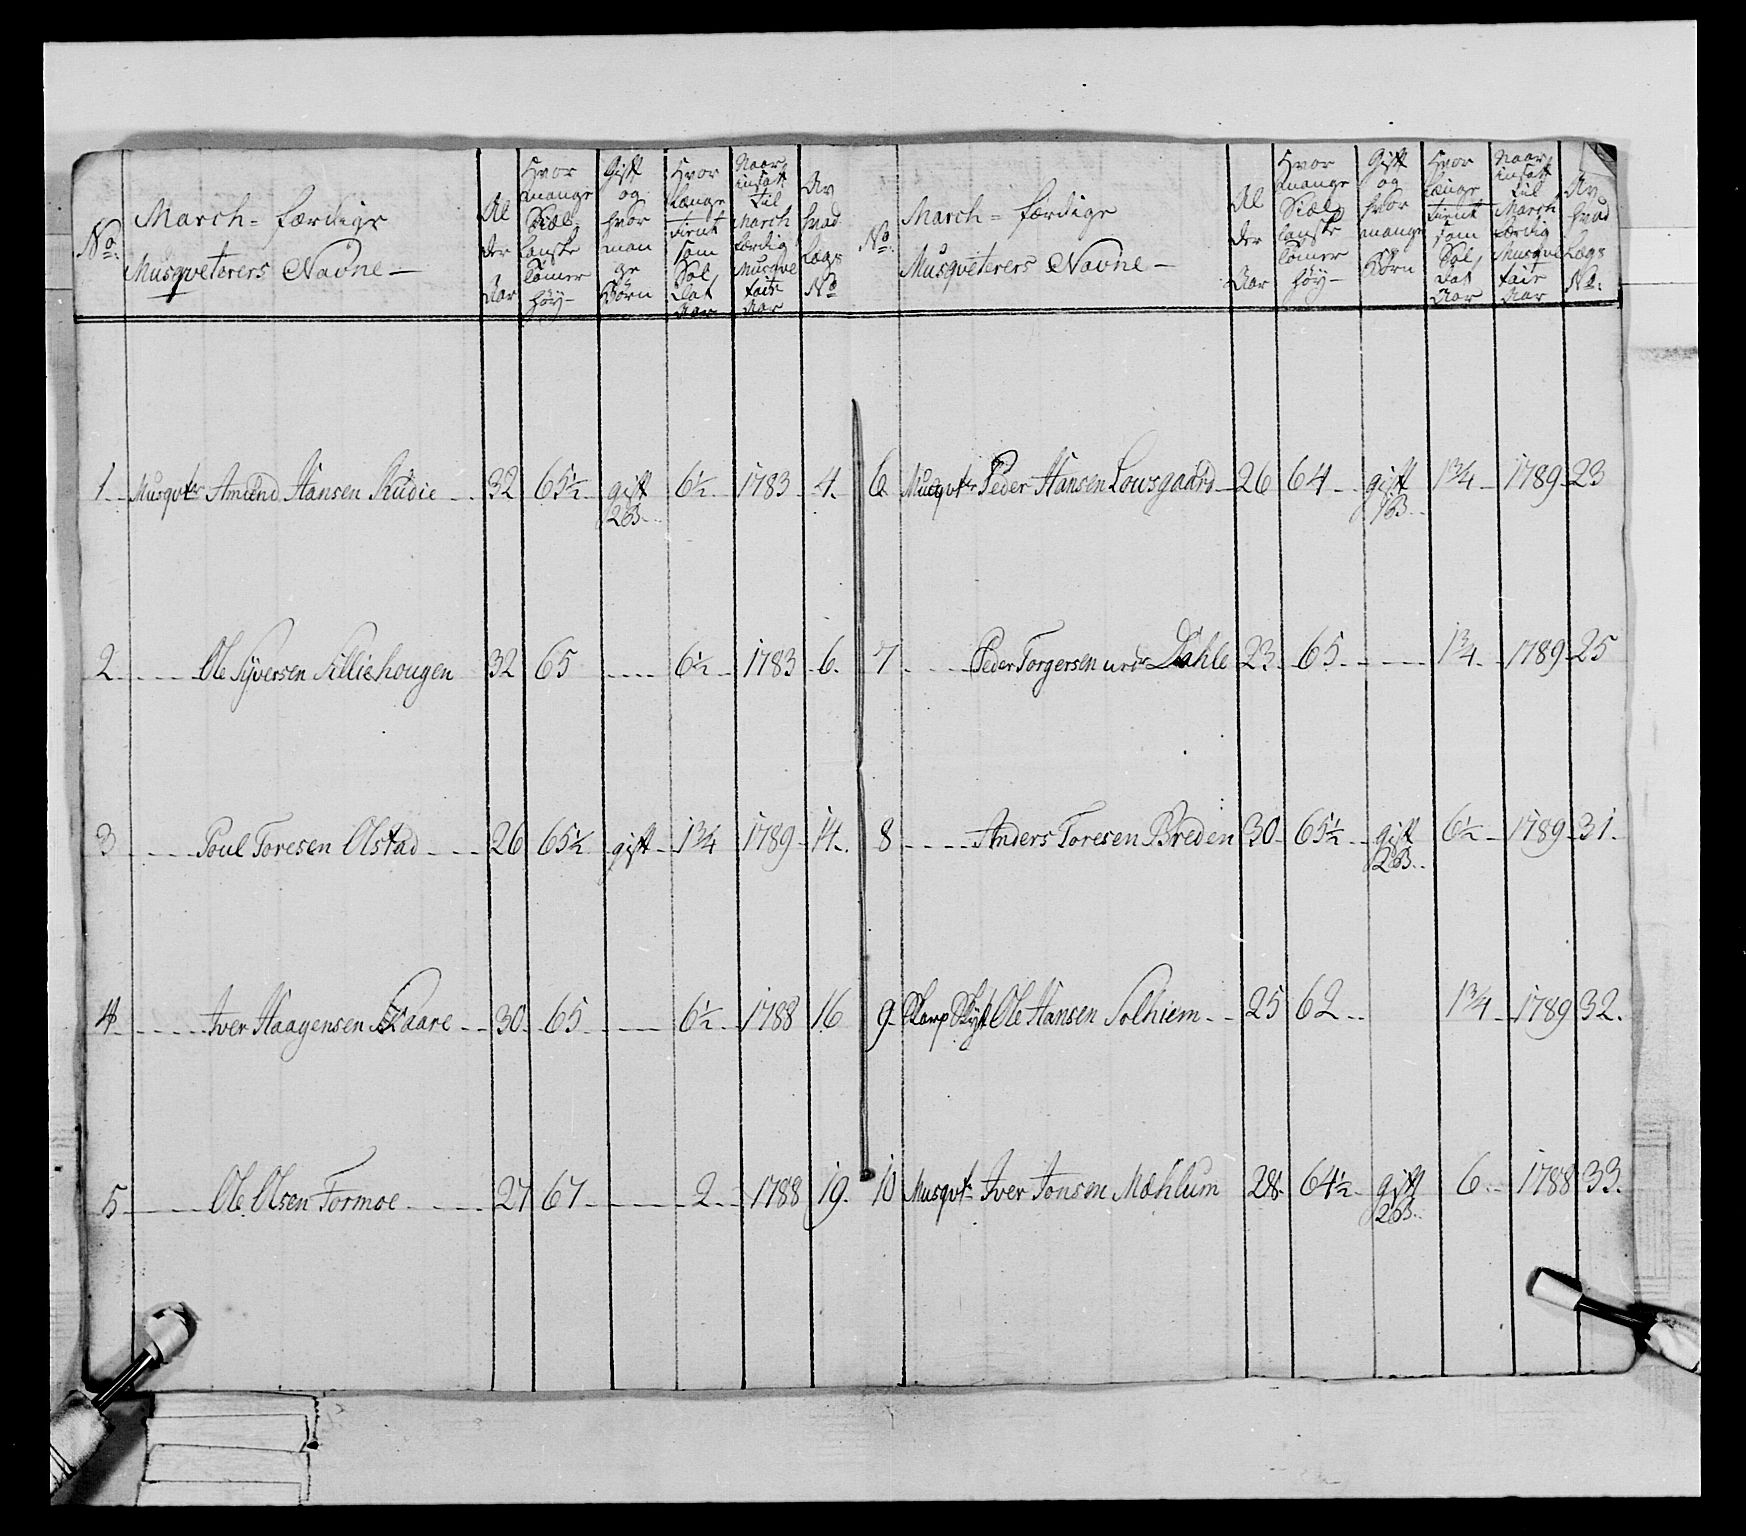 No:
March- færdige
Musqveterers Navne-
Al
der
Aar
Hvor
mange
Siæl,
lanske
tomer
høy-
Gift
og
hvor
man
ge
Børn
Hvor
længe
tient
som
Sol,
dat
Aar
Naar
insatt
til
March
færdig
Musqve
tair
Aar
Av
hvad
Lægs
No
1. Musqvtr Amund Hansen Rudie 32 65½ gift 6½ 1783 4.
2B.
2 Ole Syversen Lilliehougen 32 65 6½ 1783 6.
3 Poul Toresen Olstad 26 65½ gift 1¾ 1789 14.
4 Iver Haagensen Skaare 30 65 6½ 1788 16
5 Ole Olsen Formoe 27 67 2 1788 19.
No:
March- færdige
Musqveterers Navne-
Al
der
Aar
Hvor
mange
Siæl,
lanske
tomer
høy-
Gift
og
hvor
mange
Børn
Hvor
længe
tient
som
Sol,
dat
Aar
Naar
insatt
til
March
færdig
Musqve
tair
Aar
Av
hvad
Lægs
No:
6 Musqvtr Peder Hansen Lousgaard 26 64 gift 1¾ 1789 23
1B.
7 Peder Torgersen Dahle 23 65 1¾ 1789 25
8 Anders Toresen Breden 30 65½ gift 6½ 1789 31.
2B.
9 Skarp Skyt Ole Hansen Solhiem 25 62 1¾ 1789 32.
10 Musqvtr Iver Jonsen Mæhlum 28 64½ gift 6 1788 33.
2B.